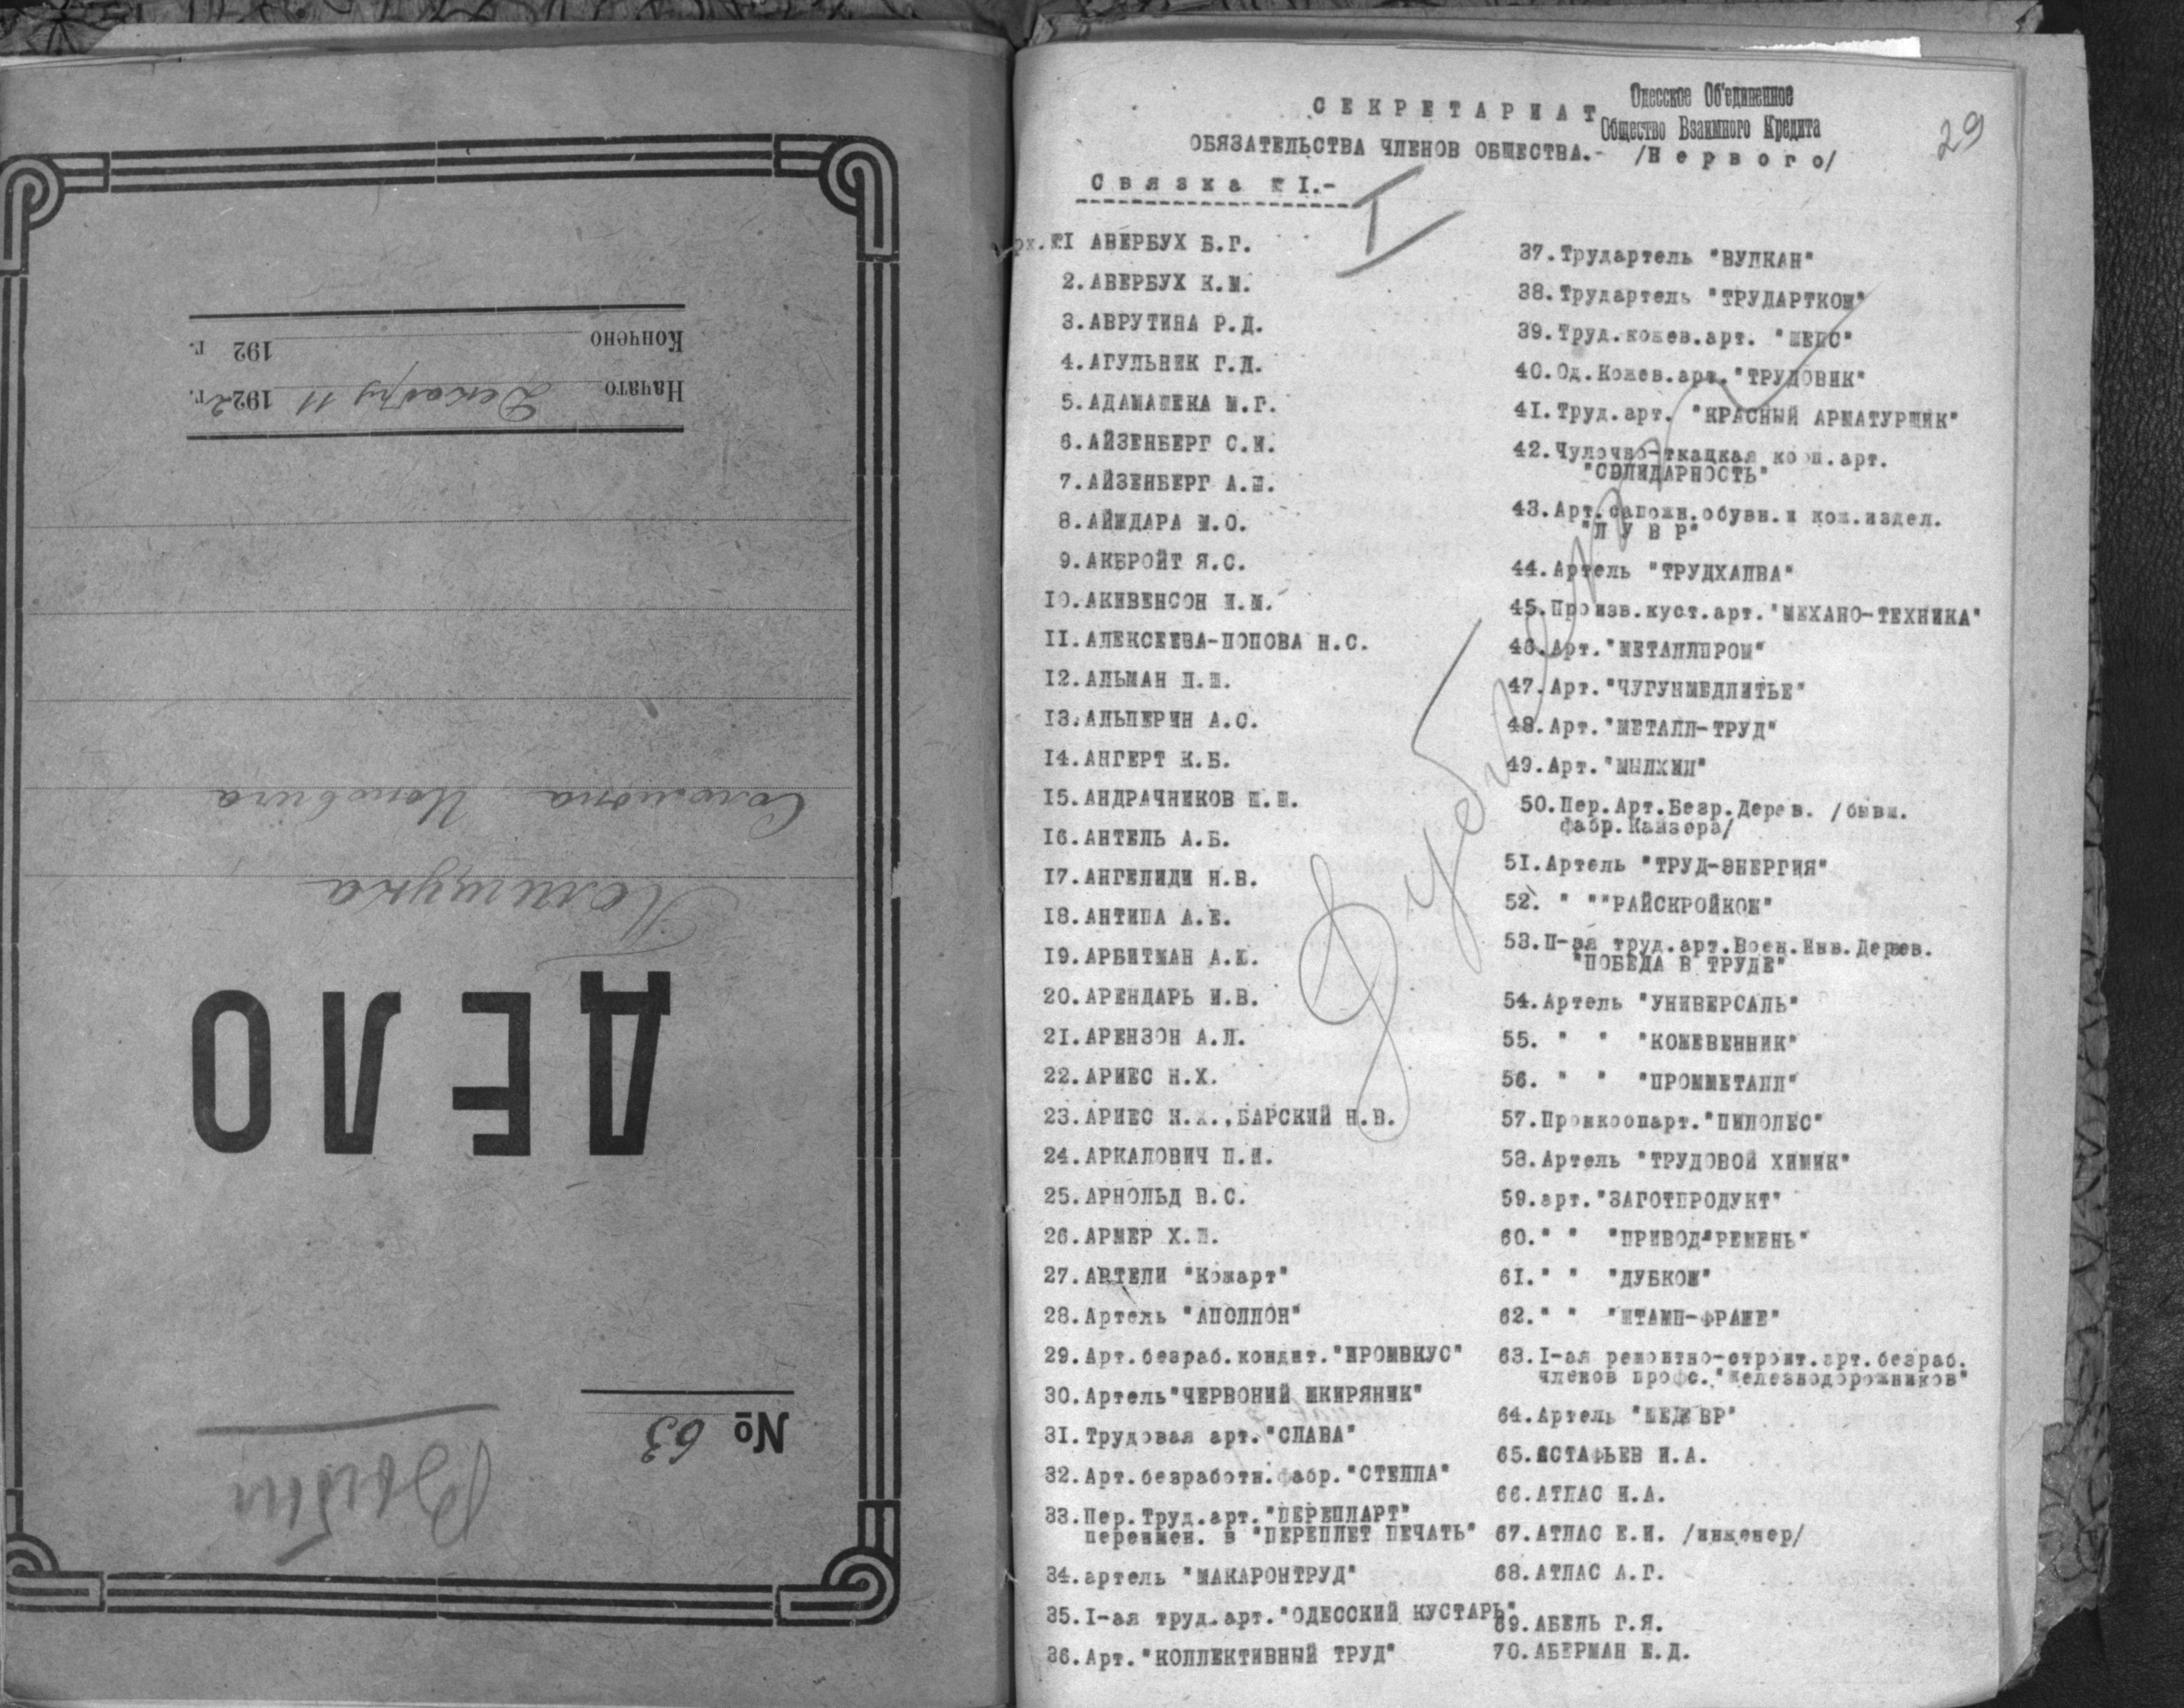 ДЕЛО
№ 63
Полищука
Соломона
Начато Декабря 11 1922 г.
Кончено 192 г.
29
СЕКРЕТАРИАТ
Одесское Об'единенное
Общество Взаимного Кредита
ОБЯЗАТЕЛЬСТВА ЧЛЕНОВ ОБЩЕСТВА.- /Первого/
Связка № I.-
I
Дубликат
№I АВЕРБУХ Б.Г.
2.АВЕРБУХ К.М.
3.АВРУТИНА Р.Д.
4.АГУЛЬНИК Г.Д.
5.АДАМАШЕКА М.Г.
6.АЙЗЕНБЕРГ С.И.
7.АЙЗЕНБЕРГ А.Ш.
8.АЙЖДАРА М.О.
9.АКБРОЙТ Я.С.
10.АКИВЕНСОН И.М.
II.АЛЕКСЕЕВА-ПОПОВА Н.С.
I2.АЛЬМАН Л.Ш.
I3.АЛЬПЕРИН А.С.
I4.АНГЕРТ К.Б.
I5.АНДРАЧНИКОВ Ш.Ш.
I6.АНТЕЛЬ А.Б.
I7.АНГЕЛИДИ Н.В.
I8.АНТИПА А.Е.
I9.АРБИТМАН А.Ю.
20.АРЕНДАРЬ И.В.
2I.АРЕНЗОН А.Л.
22.АРИЕС Н.Х.
23.АРИЕС Н.Х.,БАРСКИЙ Н.В.
24.АРКАЛОВИЧ П.И.
25.АРНОЛЬД В.С.
26.АРМЕР Х.Ш.
27.АРТЕЛИ "Кожарт"
28.Артель "АПОЛЛОН"
29.Арт.безраб.кондит."ПРОМВКУС"
30.Артель"ЧЕРВОНИЙ ШКИРЯНИК"
3I.Трудовая арт."СЛАВА"
32.Арт.безработн.фабр."СТЕЛЛА"
33.Пер.Труд.арт."ПЕРЕПЛАРТ"
переимен. в "ПЕРЕПЛЕТ ПЕЧАТЬ"
34.артель "МАКАРОНТРУД"
35.I-ая труд.арт."ОДЕССКИЙ КУСТАРЬ"
36.Арт."КОЛЛЕКТИВНЫЙ ТРУД"
37.Трудартель "ВУЛКАН"
38.Трудартель "ТРУДАРТКОЖ"
39.Труд.кожев.арт. "ШЕПС"
40.Од.Кожев.арт."ТРУДОВИК"
4I.Труд.арт. "КРАСНЫЙ АРМАТУРЩИК"
42.Чулочно-ткацкая кооп.арт.
"СОЛИДАРНОСТЬ"
43.Арт.сапожн.обувн.и кож.издел.
"ЛУВР"
44.Артель "ТРУДХАЛВА"
45.Произв.куст.арт."МЕХАНО-ТЕХНИКА"
46.Арт."МЕТАЛЛПРОМ"
47.Арт."ЧУГУНМЕДЛИТЬЕ"
48.Арт."МЕТАЛЛ-ТРУД"
49.Арт."МЫЛХИЛ"
50.Пер.Арт.Безр.Дерев. /бывш.
фабр.Кайзера/
5I.Артель "ТРУД-ЭНЕРГИЯ"
52. " ""РАЙСКРОЙКОЖ"
53.П-ая труд.арт.Воен.Инв.Дерев.
"ПОБЕДА В ТРУДЕ"
54.Артель "УНИВЕРСАЛЬ"
55. " " "КОЖЕВЕННИК"
56. " " "ПРОММЕТАЛЛ"
57.Промкоопарт."ПИЛОЛЕС"
58.Артель "ТРУДОВОЙ ХИМИК"
59.арт."ЗАГОТПРОДУКТ"
60." " "ПРИВОД-РЕМЕНЬ"
6I." " "ДУБКОЖ"
62." " "ШТАМП-ФРАЖЕ"
63.I-ая ремонтно-строит.арт.безраб.
членов профс."Железнодорожников"
64.Артель "ШЕДЕВР"
65.АСТАФЬЕВ И.А.
66.АТЛАС И.А.
67.АТЛАС Е.И. /инженер/
68.АТЛАС А.Г.
69.АБЕЛЬ Г.Я.
70.АБЕРМАН Е.Д.